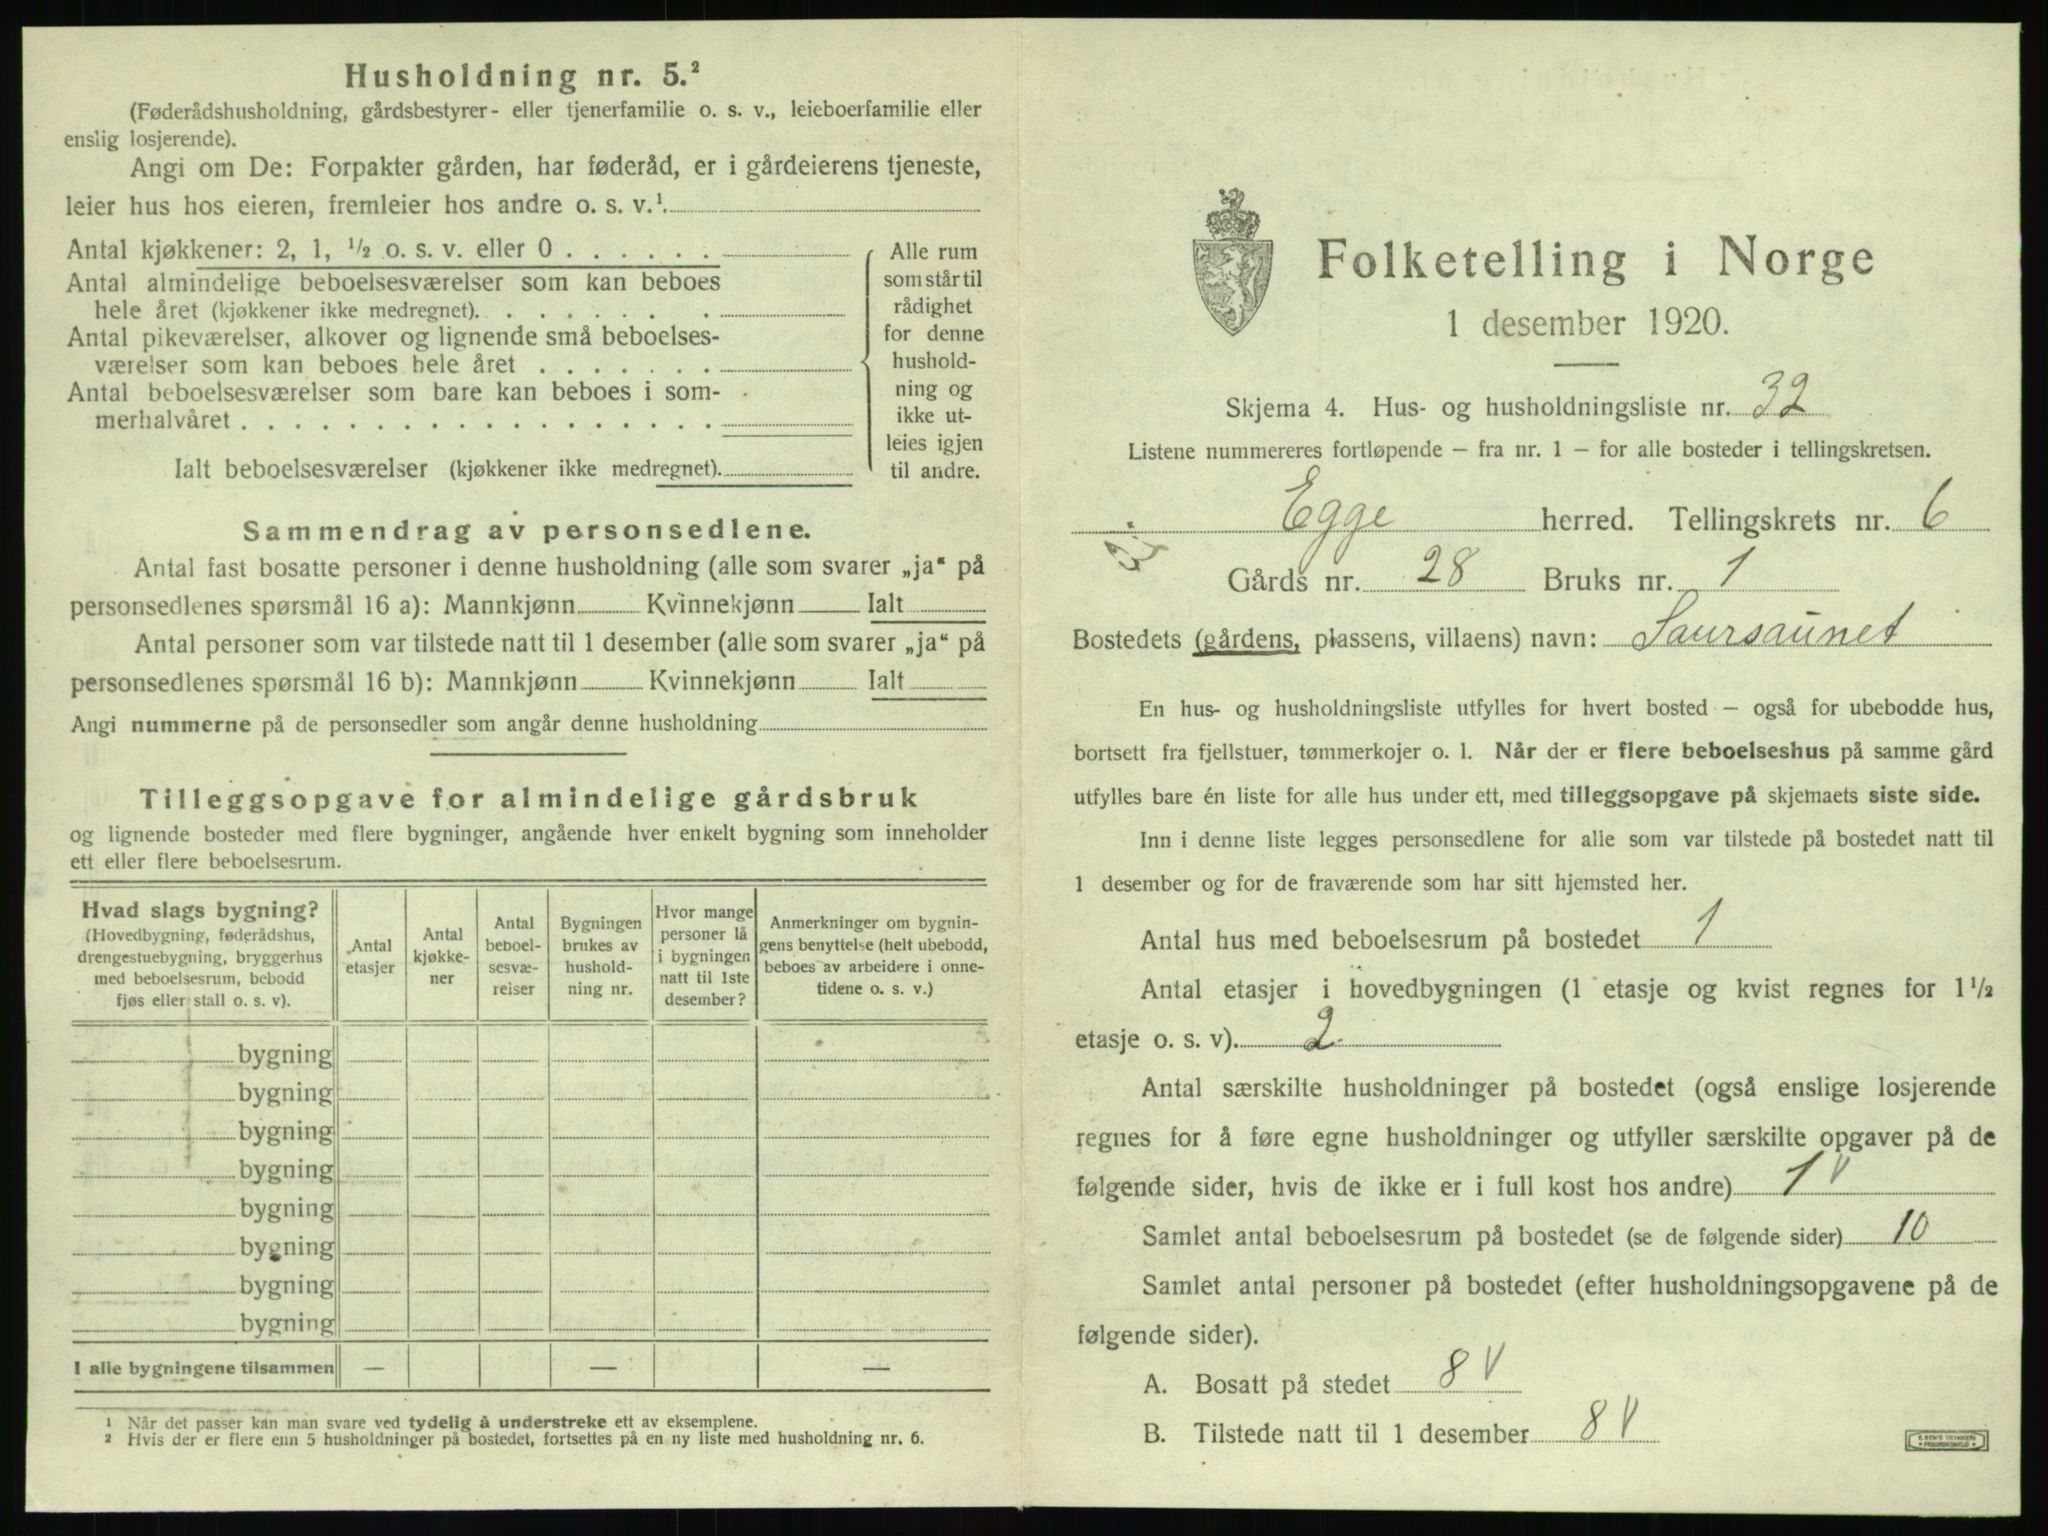 Husholdning nr. 5.²
(Føderådshusholdning, gårdsbestyrer- eller tjenerfamilie o. s. v., leieboerfamilie eller
enslig losjerende).
Angi om De: Forpakter gården, har føderåd, er i gårdeierens tjeneste,
leier hus hos eieren, fremleier hos andre o. s. v.¹.
Antal kjøkkener: 2, 1, ½ o. s. v. eller 0 . . . . . .
Antal almindelige beboelsesværelser som kan beboes
hele året (kjøkkener ikke medregnet). . . . . . .
Antal pikeværelser, alkover og lignende små beboelses-
værelser som kan beboes hele året . . . . . . .
Antal beboelsesværelser som bare kan beboes i som-
merhalvåret . . . . . . . . . . . . . . . . . .
Ialt beboelsesværelser (kjøkkener ikke medregnet).
Alle rum
som står til
rådighet
for denne
hushold-
ning og
ikke ut-
leies igjen
til andre.
Sammendrag av personsedlene.
Antal fast bosatte personer i denne husholdning (alle som svarer „ja“ på
personsedlenes spørsmål 16 a): Mannkjønn Kvinnekjønn Ialt
Antal personer som var tilstede natt til 1 desember (alle som svarer „ja“ på
personsedlenes spørsmål 16 b): Mannkjønn Kvinnekjønn Ialt
Angi nummerne på de personsedler som angår denne husholdning
Tilleggsopgave for almindelige gårdsbruk
og lignende bosteder med flere bygninger, angående hver enkelt bygning som inneholder
ett eller flere beboelsesrum.
Hvad slags bygning?
(Hovedbygning, føderådshus,
drengestuebygning, bryggerhus
med beboelsesrum, bebodd
fjøs eller stall o. s. v).
Antal
etasjer
Antal
kjøkke-
ner
Antal
beboel-
sesvæ-
relser
Bygningen
brukes av
hushold-
ning nr.
Hvor mange
personer lå
i bygningen
natt til 1ste
desember?
Anmerkninger om bygnin-
gens benyttelse (helt ubebodd,
beboes av arbeidere i onne-
tidene o. s. v.)
bygning
bygning
bygning
bygning
bygning
bygning
bygning
bygning
I alle bygningene tilsammen — — —
¹ Når det passer kan man svare ved tydelig å understreke ett av eksemplene.
² Hvis der er flere enn 5 husholdninger på bostedet, fortsettes på en ny liste med husholdning nr. 6.
Folketelling i Norge
1 desember 1920.
Skjema 4. Hus- og husholdningsliste nr. 32
Listene nummereres fortløpende – fra nr. 1 – for alle bosteder i tellingskretsen.
Egge herred. Tellingskrets nr. 6
Gårds nr. 28 Bruks nr. 1
Bostedets (gårdens, plassens, villaens) navn: Saursaunet
En hus- og husholdningsliste utfylles for hvert bosted – også for ubebodde hus,
bortsett fra fjellstuer, tømmerkojer o. l. Når der er flere beboelseshus på samme gård
utfylles bare én liste for alle hus under ett, med tilleggsopgave på skjemaets siste side.
Inn i denne liste legges personsedlene for alle som var tilstede på bostedet natt til
1 desember og for de fraværende som har sitt hjemsted her.
Antal hus med beboelsesrum på bostedet 1
Antal etasjer i hovedbygningen (1 etasje og kvist regnes for 1½
etasje o. s. v). 2
Antal særskilte husholdninger på bostedet (også enslige losjerende
regnes for å føre egne husholdninger og utfyller særskilte opgaver på de
følgende sider, hvis de ikke er i full kost hos andre) 1 V
Samlet antal beboelsesrum på bostedet (se de følgende sider) 10
Samlet antal personer på bostedet (efter husholdningsopgavene på de
følgende sider).
A. Bosatt på stedet 8 V
B. Tilstede natt til 1 desember 8 V